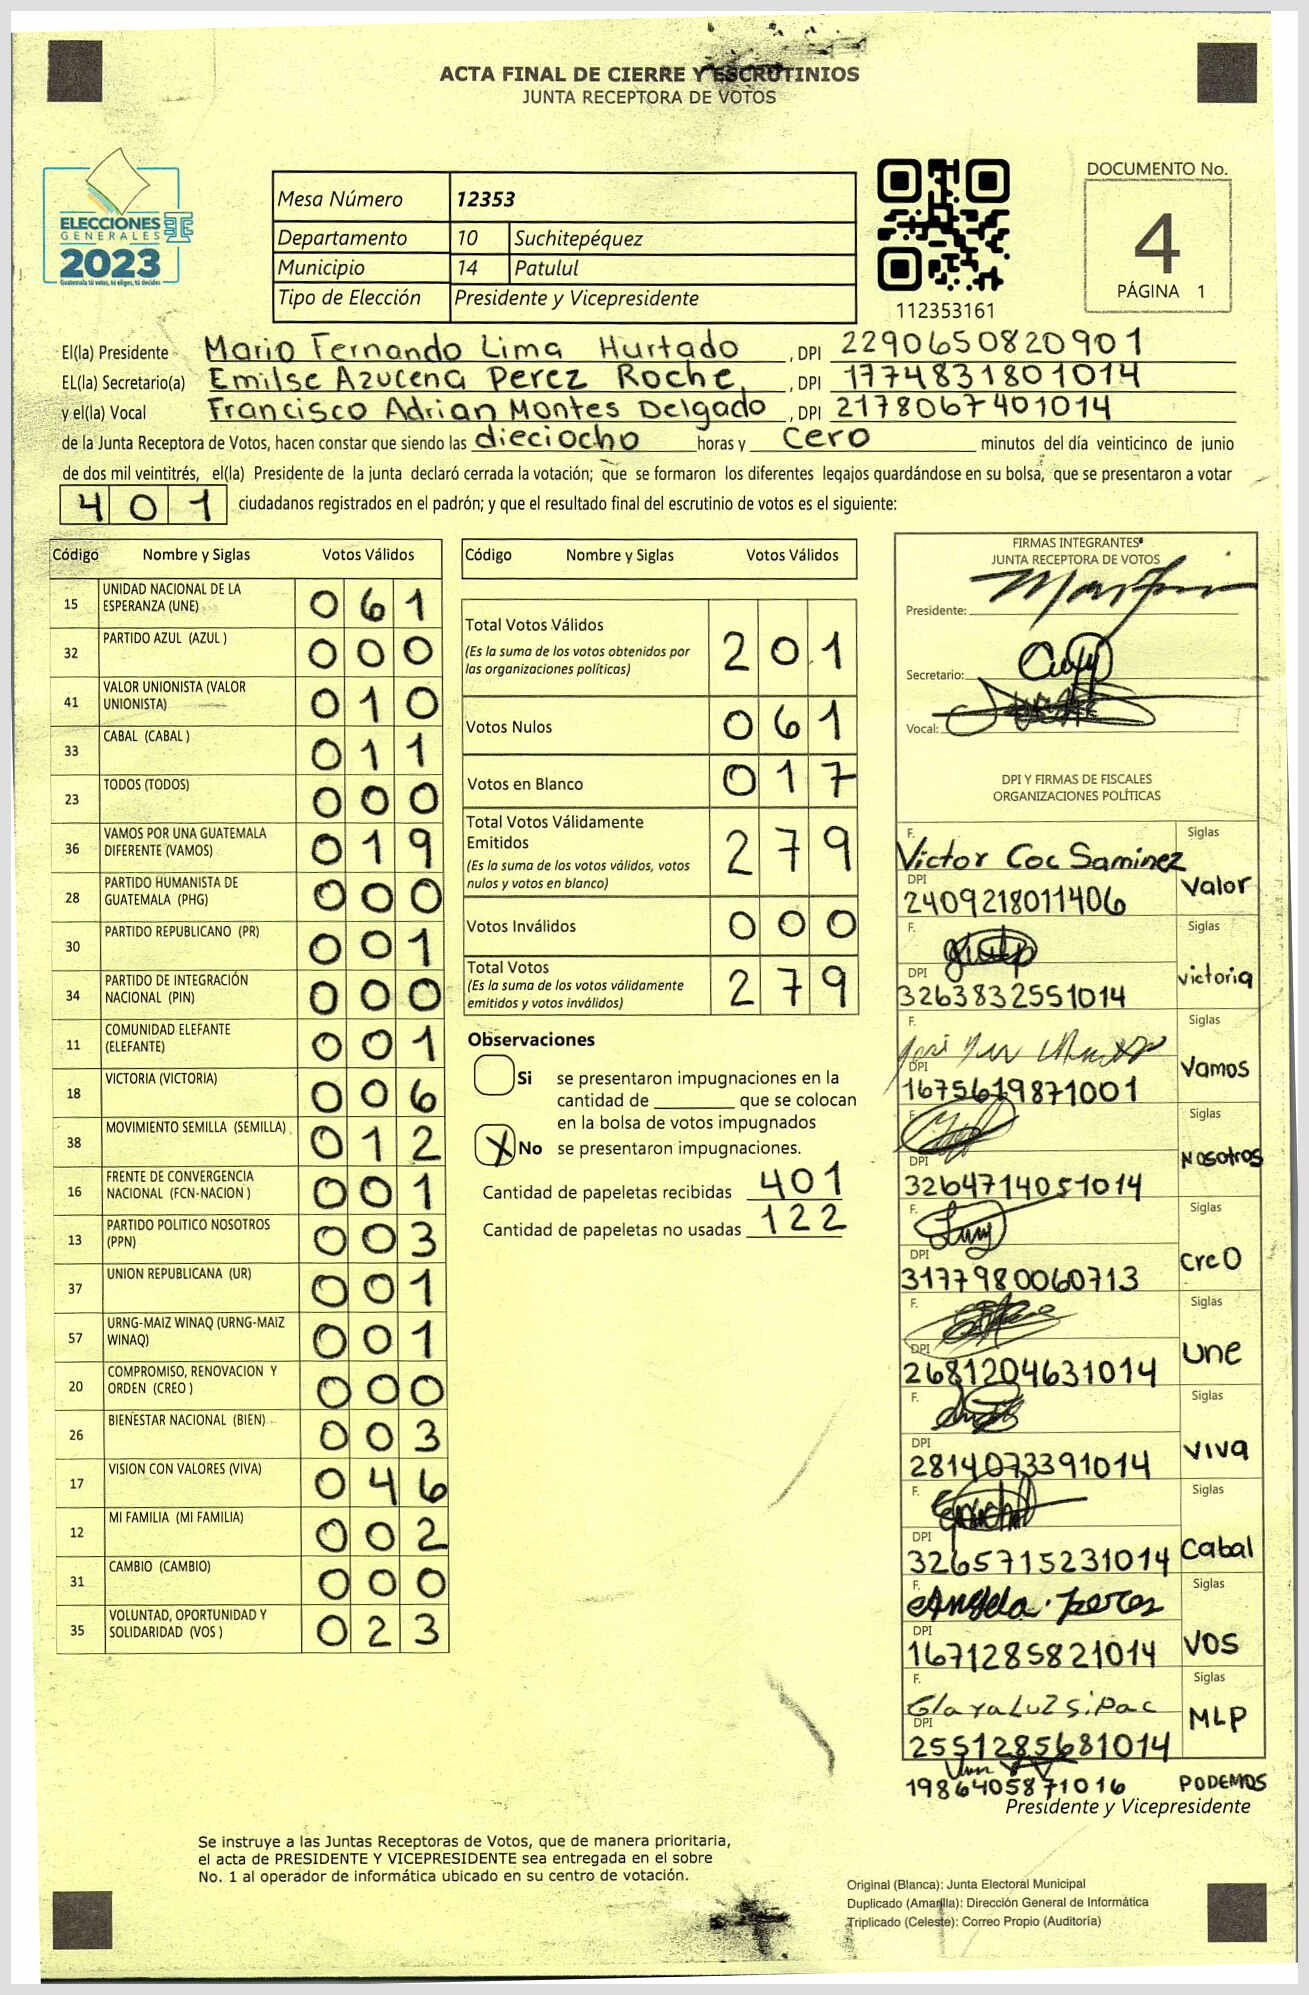 ACTA FINAL DE CIERRE Y ESCRUTINIOS
JUNTA RECEPTORA DE VOTOS
ELECCIONES
GENERALES
2023
Guatemala tú votas, tú eliges, tú decides
Mesa Número 12353
Departamento 10 Suchitepéquez
Municipio 14 Patulul
Tipo de Elección Presidente y Vicepresidente
112353161
DOCUMENTO No.
4
PÁGINA 1
El(la) Presidente Mario Fernando Lima Hurtado , DPI 2290650820901
EL(la) Secretario(a) Emilse Azucena Perez Roche, , DPI 1774831801014
y el(la) Vocal Francisco Adrian Montes Delgado , DPI 2178067401014
de la Junta Receptora de Votos, hacen constar que siendo las dieciocho horas y cero minutos del día veinticinco de junio
de dos mil veintitrés, el(la) Presidente de la junta declaró cerrada la votación; que se formaron los diferentes legajos guardándose en su bolsa, que se presentaron a votar
401 ciudadanos registrados en el padrón; y que el resultado final del escrutinio de votos es el siguiente:
Código Nombre y Siglas Votos Válidos
15 UNIDAD NACIONAL DE LA
ESPERANZA (UNE) 061
32 PARTIDO AZUL (AZUL ) 000
41 VALOR UNIONISTA (VALOR
UNIONISTA) 010
33 CABAL (CABAL ) 011
23 TODOS (TODOS) 000
36 VAMOS POR UNA GUATEMALA
DIFERENTE (VAMOS) 019
28 PARTIDO HUMANISTA DE
GUATEMALA (PHG) 000
30 PARTIDO REPUBLICANO (PR) 001
34 PARTIDO DE INTEGRACIÓN
NACIONAL (PIN) 000
11 COMUNIDAD ELEFANTE
(ELEFANTE) 001
18 VICTORIA (VICTORIA) 006
38 MOVIMIENTO SEMILLA (SEMILLA) 012
16 FRENTE DE CONVERGENCIA
NACIONAL (FCN-NACION ) 001
13 PARTIDO POLITICO NOSOTROS
(PPN) 003
37 UNION REPUBLICANA (UR) 001
57 URNG-MAIZ WINAQ (URNG-MAIZ
WINAQ) 001
20 COMPROMISO, RENOVACION Y
ORDEN (CREO ) 000
26 BIENESTAR NACIONAL (BIEN) 003
17 VISION CON VALORES (VIVA) 046
12 MI FAMILIA (MI FAMILIA) 002
31 CAMBIO (CAMBIO) 000
35 VOLUNTAD, OPORTUNIDAD Y
SOLIDARIDAD (VOS ) 023
Código Nombre y Siglas Votos Válidos
Total Votos Válidos 201
(Es la suma de los votos obtenidos por
las organizaciones políticas)
Votos Nulos 061
Votos en Blanco 017
Total Votos Válidamente
Emitidos 279
(Es la suma de los votos válidos, votos
nulos y votos en blanco)
Votos Inválidos 000
Total Votos 279
(Es la suma de los votos válidamente
emitidos y votos inválidos)
Observaciones
Si se presentaron impugnaciones en la
cantidad de ________ que se colocan
en la bolsa de votos impugnados
X No se presentaron impugnaciones.
Cantidad de papeletas recibidas 401
Cantidad de papeletas no usadas 122
FIRMAS INTEGRANTES
JUNTA RECEPTORA DE VOTOS
Presidente:
Secretario:
Vocal:
DPI Y FIRMAS DE FISCALES
ORGANIZACIONES POLÍTICAS
F. Victor Coc Saminez Siglas
DPI 2409218011406 Valor
F. Siglas
DPI 3263832551014 victoria
F. Siglas
DPI 1675619871001 Vamos
F. Siglas
DPI 3264714051014 Nosotros
F. Siglas
DPI 3177980060713 CreO
F. Siglas
DPI 2681204631014 Une
F. Siglas
DPI 2814073391014 Viva
F. Siglas
DPI 3265715231014 Cabal
F. Angela Perez Siglas
DPI 1671285821014 VOS
F. Clara Luz Sipac Siglas
DPI 2551285681014 MLP
1986405871016 PODEMOS
Presidente y Vicepresidente
Se instruye a las Juntas Receptoras de Votos, que de manera prioritaria,
el acta de PRESIDENTE Y VICEPRESIDENTE sea entregada en el sobre
No. 1 al operador de informática ubicado en su centro de votación.
Original (Blanca): Junta Electoral Municipal
Duplicado (Amarilla): Dirección General de Informática
Triplicado (Celeste): Correo Propio (Auditoría)